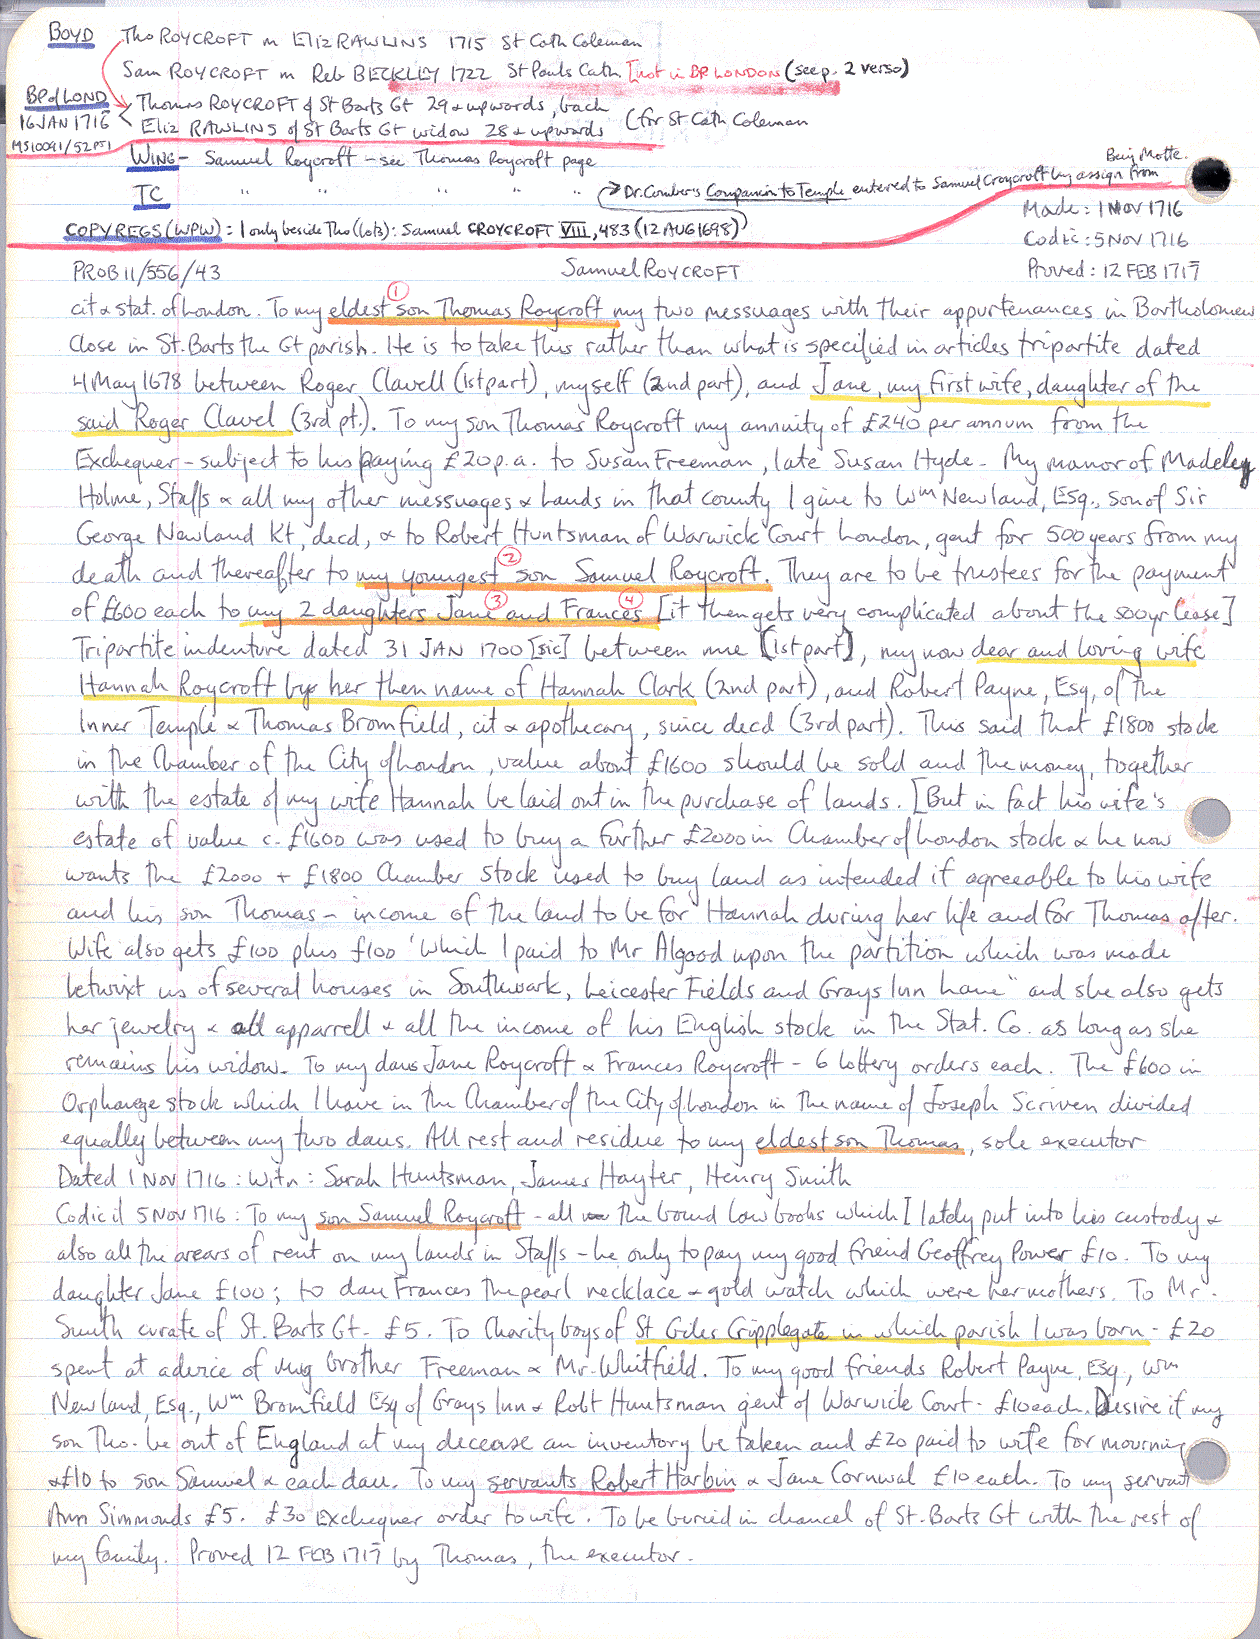 BOYD Tho ROYCROFT m ELIZ RAWLINS 1715 St Cath Coleman
Sam ROYCROFT m Reb BECKLEY 1722 St Pauls Cath [not in BP LONDON (see p. 2 verso)
BP of LOND Thomas ROYCROFT of St Barts Gt 29 & upwards, bach
16 JAN 1716 Eliz RAWLINS of St Barts Gt widow 28 & upwards (for St Cath Coleman
MS10091/52 pt1
WING - Samuel Roycroft - see Thomas Roycroft page
Benj Motte.
TC " " " " " Dr. Comber's Companion to Temple entered to Samuel Croycroft by assign from
Made: 1 NOV 1716
COPY REGS (WPW): 1 only beside Tho (lots): Samuel CROYCROFT VIII, 483 (12 AUG 1698)
Codic: 5 NOV 1716
PROB 11/556/43 Samuel ROYCROFT Proved: 12 FEB 1717
cit & stat. of London. To my eldest (1) son Thomas Roycroft my two messuages with their appurtenances in Bartholomew
Close in St. Barts the Gt parish. He is to take this rather than what is specified in articles tripartite dated
4 May 1678 between Roger Clavell (1st part), myself (2nd part), and Jane, my first wife, daughter of the
said Roger Clavel (3rd pt.). To my son Thomas Roycroft my annuity of £240 per annum from the
Exchequer - subject to his paying £20 p.a. to Susan Freeman, late Susan Hyde. My manor of Madeley
Holme, Staffs & all my other messuages & lands in that county I give to Wm Newland, Esq., son of Sir
George Newland Kt, decd, & to Robert Huntsman of Warwick Court London, gent for 500 years from my
death and thereafter to my youngest (2) son Samuel Roycroft. They are to be trustees for the payment
of £600 each to my 2 daughters Jane (3) and Frances (4) [it then gets very complicated about the 500 yr lease]
Tripartite indenture dated 31 JAN 1700 [sic] between me [1st part], my now dear and loving wife
Hannah Roycroft by her then name of Hannah Clark (2nd part), and Robert Payne, Esq, of the
Inner Temple & Thomas Bromfield, cit & apothecary, since decd (3rd part). This said that £1800 stock
in the Chamber of the City of London, value about £1600 should be sold and the money, together
with the estate of my wife Hannah be laid out in the purchase of lands. [But in fact his wife's
estate of value c. £1600 was used to buy a further £2000 in Chamber of London stock & he now
wants the £2000 + £1800 Chamber stock used to buy land as intended if agreeable to his wife
and his son Thomas - income of the land to be for Hannah during her life and for Thomas after.
Wife also gets £100 plus £100 'which I paid to Mr Algood upon the partition which was made
betwixt us of several houses in Southwark, Leicester Fields and Grays Inn Lane" and she also gets
her jewelry & all apparrell & all the income of his English stock in the Stat. Co. as long as she
remains his widow. To my daus Jane Roycroft & Frances Roycroft - 6 lottery orders each. The £600 in
Orphange stock which I have in the Chamber of the City of London in the name of Joseph Scriven divided
equally between my two daus. All rest and residue to my eldest son Thomas, sole executor
Dated 1 NOV 1716: Witn: Sarah Huntsman, James Hayter, Henry Smith
Codicil 5 NOV 1716: To my son Samuel Roycroft - all the bound Law books which I lately put into his custody &
also all the arears of rent on my lands in Staffs - he only to pay my good friend Geoffrey Power £10. To my
daughter Jane £100; to dau Frances the pearl necklace & gold watch which were her mothers. To Mr.
Smith curate of St. Barts Gt - £5. To Charity boys of St Giles Cripplegate in which parish I was born - £20
spent at advice of my brother Freeman & Mr. Whitfield. To my good friends Robert Payne, Esq., Wm
Newland, Esq., Wm Bromfield Esq of Grays Inn & Robt Huntsman gent of Warwick Court - £10 each. Desire if my
son Tho. be out of England at my decease an inventory be taken and £20 paid to wife for mourning
& £10 to son Samuel & each dau. To my servants Robert Harbin & Jane Cornwal £10 each. To my servant
Ann Simmonds £5. £30 Exchequer order to wife. To be buried in chancel of St. Barts Gt with the rest of
my family. Proved 12 FEB 1717 by Thomas, the executor.